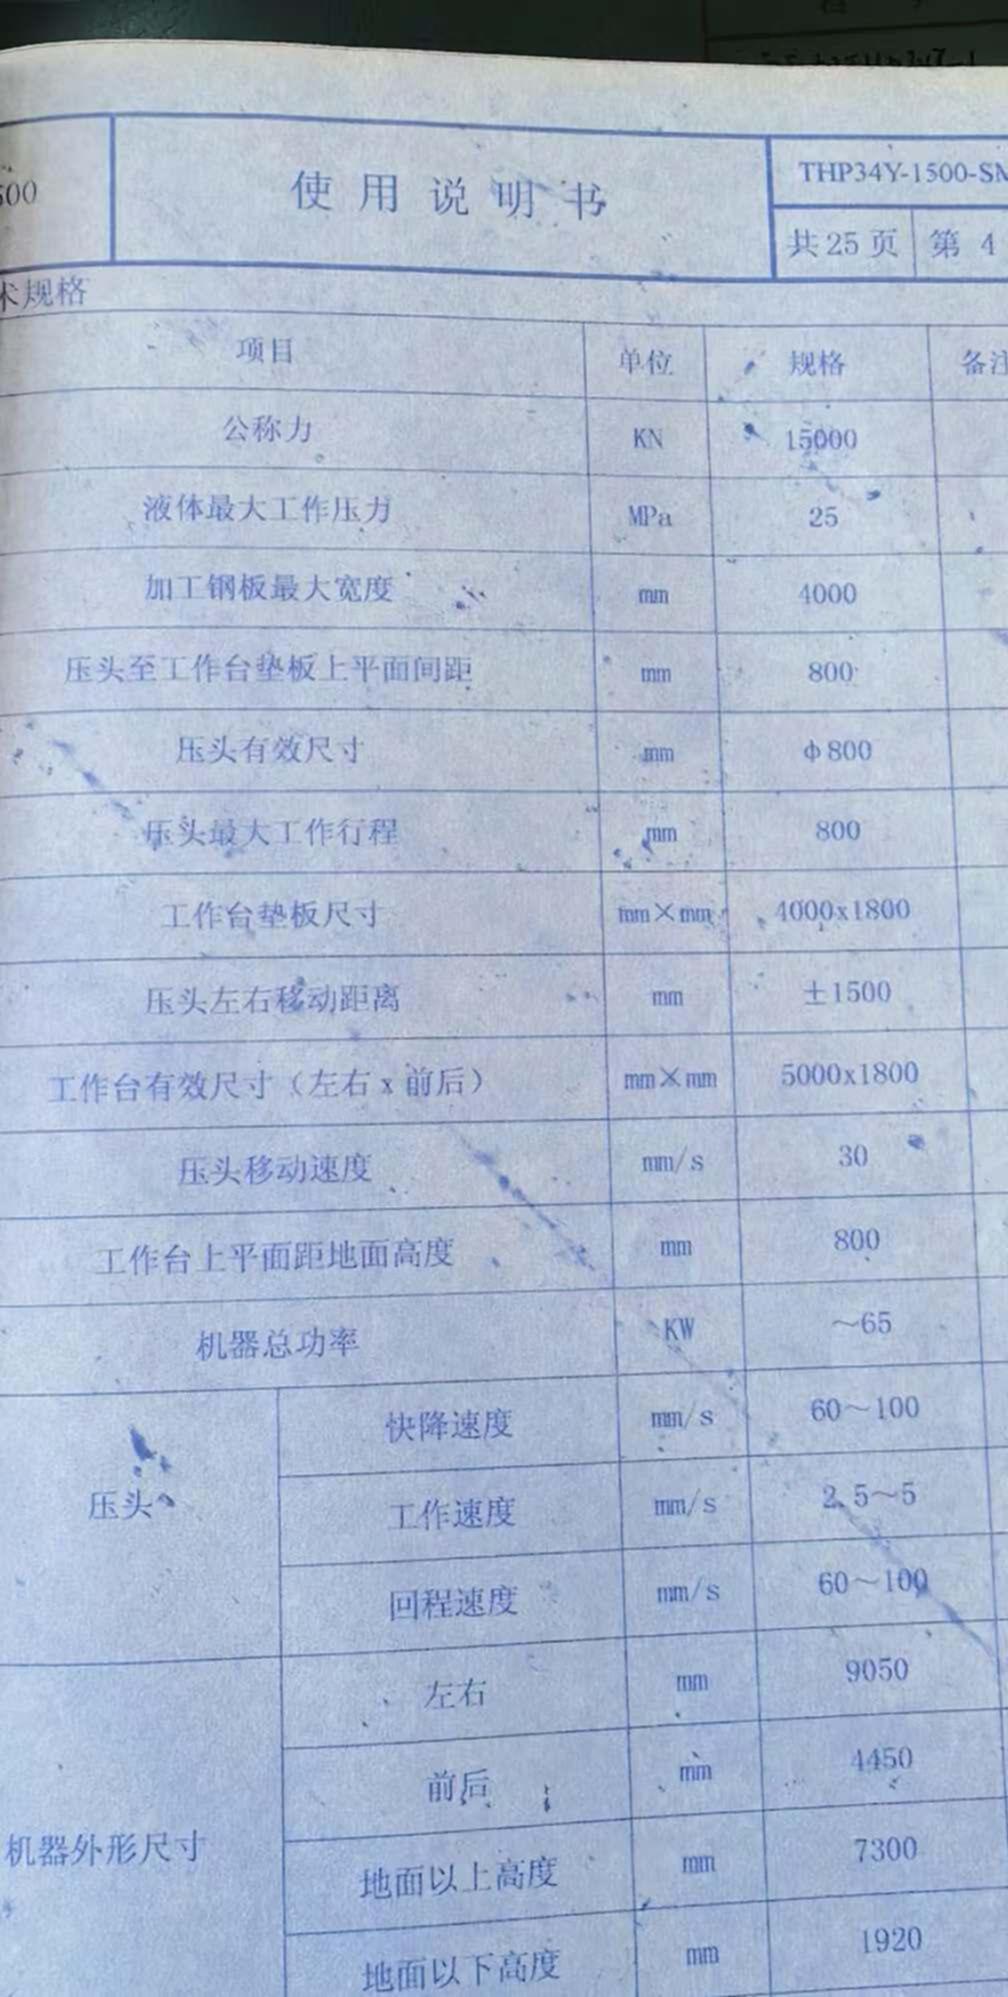 500
使用说明书
THP34Y-1500-SM
共25页 第 4
术规格
项目 单位 规格 备注
公称力 KN 15000
液体最大工作压力 MPa 25
加工钢板最大宽度 mm 4000
压头至工作台垫板上平面间距 mm 800
压头有效尺寸 mm ф800
压头最大工作行程 mm 800
工作台垫板尺寸 mm×mm 4000x1800
压头左右移动距离 mm ±1500
工作台有效尺寸（左右x前后） mm×mm 5000x1800
压头移动速度 mm/s 30
工作台上平面距地面高度 mm 800
机器总功率 KW ～65
压头 快降速度 mm/s 60～100
工作速度 mm/s 2.5～5
回程速度 mm/s 60～100
机器外形尺寸 左右 mm 9050
前后 mm 4450
地面以上高度 mm 7300
地面以下高度 mm 1920